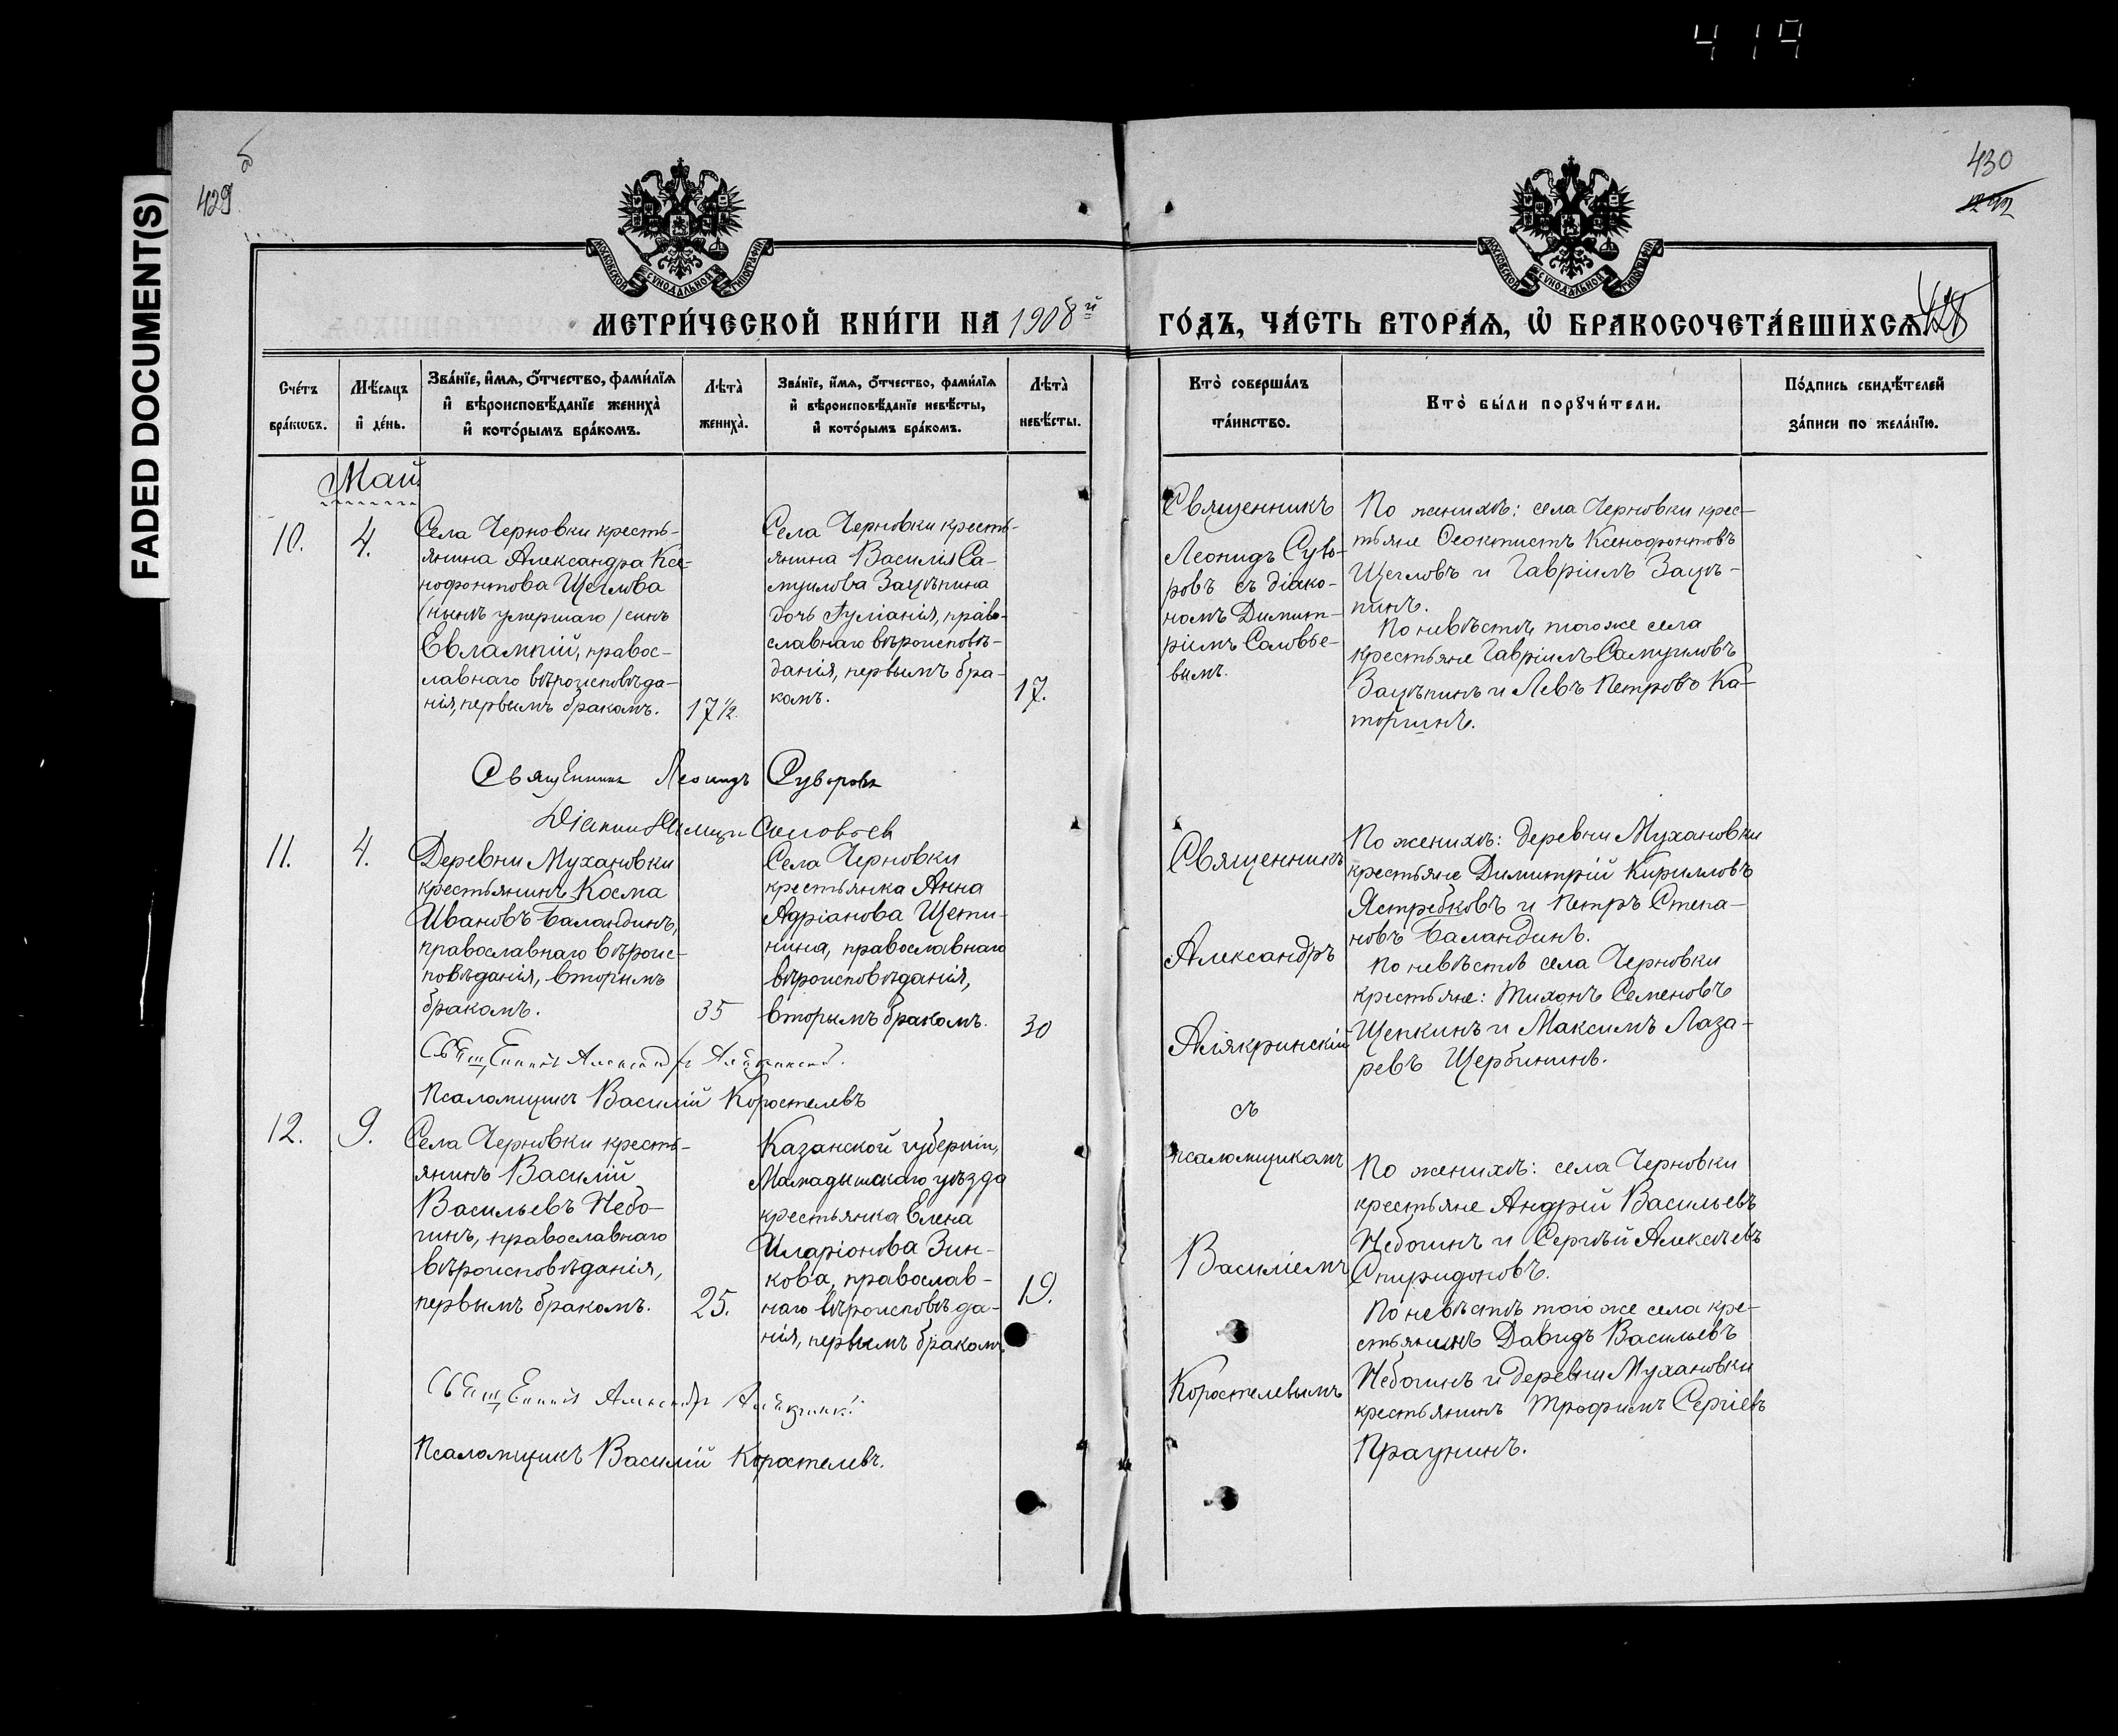 419
FADED DOCUMENT(S)
429
430
МОСКОВСКОЙ СѴНОДАЛЬНОЙ ТИПОГРАФІИ
МОСКОВСКОЙ СѴНОДАЛЬНОЙ ТИПОГРАФІИ
МЕТРИ́ЧЕСКОЙ КНИ́ГИ НА 1908й ГО́ДЪ, ЧА́СТЬ ВТОРА́Я, Ѡ БРАКОСОЧЕТА́ВШИХСЯ.
428
Сче́тъ
бра́кωвъ.
Мѣ́сяцъ
и҆ де́нь.
Зва́нїе, и҆́мя, ѻ҆́тчество, фами́лїя
и҆ вѣроисповѣ́данїе жениха̀
и҆ кото́рымъ бра́комъ.
Лѣта̀
жениха̀.
Зва́нїе, и҆́мя, ѻ҆́тчество, фами́лїя
и҆ вѣроисповѣ́данїе невѣ́сты,
и҆ кото́рымъ бра́комъ.
Лѣта̀
невѣ́сты.
Кто̀ соверша́лъ
та́инство.
Кто̀ бы́ли порꙋчи́тели.
По́дпись свидѣ́телей
за́писи по жела́нїю.
Май
10.
4.
Села Черновки кресть-
янина Александра Ксе-
нофонтова Щеглова
(нынѣ умершаго) сынъ
Евлампій, правос-
лавнаго вѣроисповѣда-
нія, первымъ бракомъ.
17½.
Села Черновки кресть-
янина Василія Са-
муилова Зацѣпина
дочь Іуліанія, право-
славнаго вѣроисповѣ-
данія, первымъ бра-
комъ.
17.
Священникъ
Леонидъ Суво-
ровъ съ діако-
номъ Димит-
ріемъ Соловье-
вымъ.
По женихѣ: села Черновки крес-
тьяне Ѳеоктистъ Ксенофонтовъ
Щегловъ и Гавріилъ Зацѣ-
пинъ.
По невѣстѣ, того же села
крестьяне Гавріилъ Самуиловъ
Зацѣпинъ и Левъ Петровъ Ка-
торгинъ.
Священникъ Леонидъ Суворовъ
Діаконъ Соловьев
11.
4.
Деревни Мухановки
крестьянинъ Косма
Ивановъ Баландинъ,
православнаго вѣроис-
повѣданія, вторымъ
бракомъ.
35
Села Черновки
крестьянка Анна
Адріанова Щети-
нина, православнаго
вѣроисповѣданія,
вторымъ бракомъ.
30
Священникъ
Александръ
Алякринскій
съ
псаломщикомъ
Василіемъ
Коростелевымъ
По женихѣ: деревни Мухановки
крестьяне Димитрій Кирилловъ
Ястребковъ и Петръ Степа-
новъ Баландинъ.
По невѣстѣ села Черновки
крестьяне: Тихонъ Семеновъ
Щепкинъ и Максимъ Лаза-
ревъ Щербининъ.
Священникъ Александръ Алякринскій.
Псаломщикъ Василій Коростелевъ
12.
9.
Села Черновки кресть-
янинъ Василій
Васильевъ Небо-
гинъ, православнаго
вѣроисповѣданія,
первымъ бракомъ.
25.
Казанской губерніи,
Мамадышскаго уѣзда
крестьянка Елена
Иларіонова Зин-
кова, православ-
наго вѣроисповѣда-
нія, первымъ бракомъ.
19.
По женихѣ: села Черновки
крестьяне Андрей Васильевъ
Небогинъ и Сергѣй Алексѣевъ
Спиридоновъ.
По невѣстѣ того же села кре-
стьянинъ Давидъ Васильевъ
Небогинъ и деревни Мухановки
крестьянинъ Трофимъ Сергіевъ
Праунинъ.
Священникъ Александръ
Псаломщикъ Василій Коростелевъ.